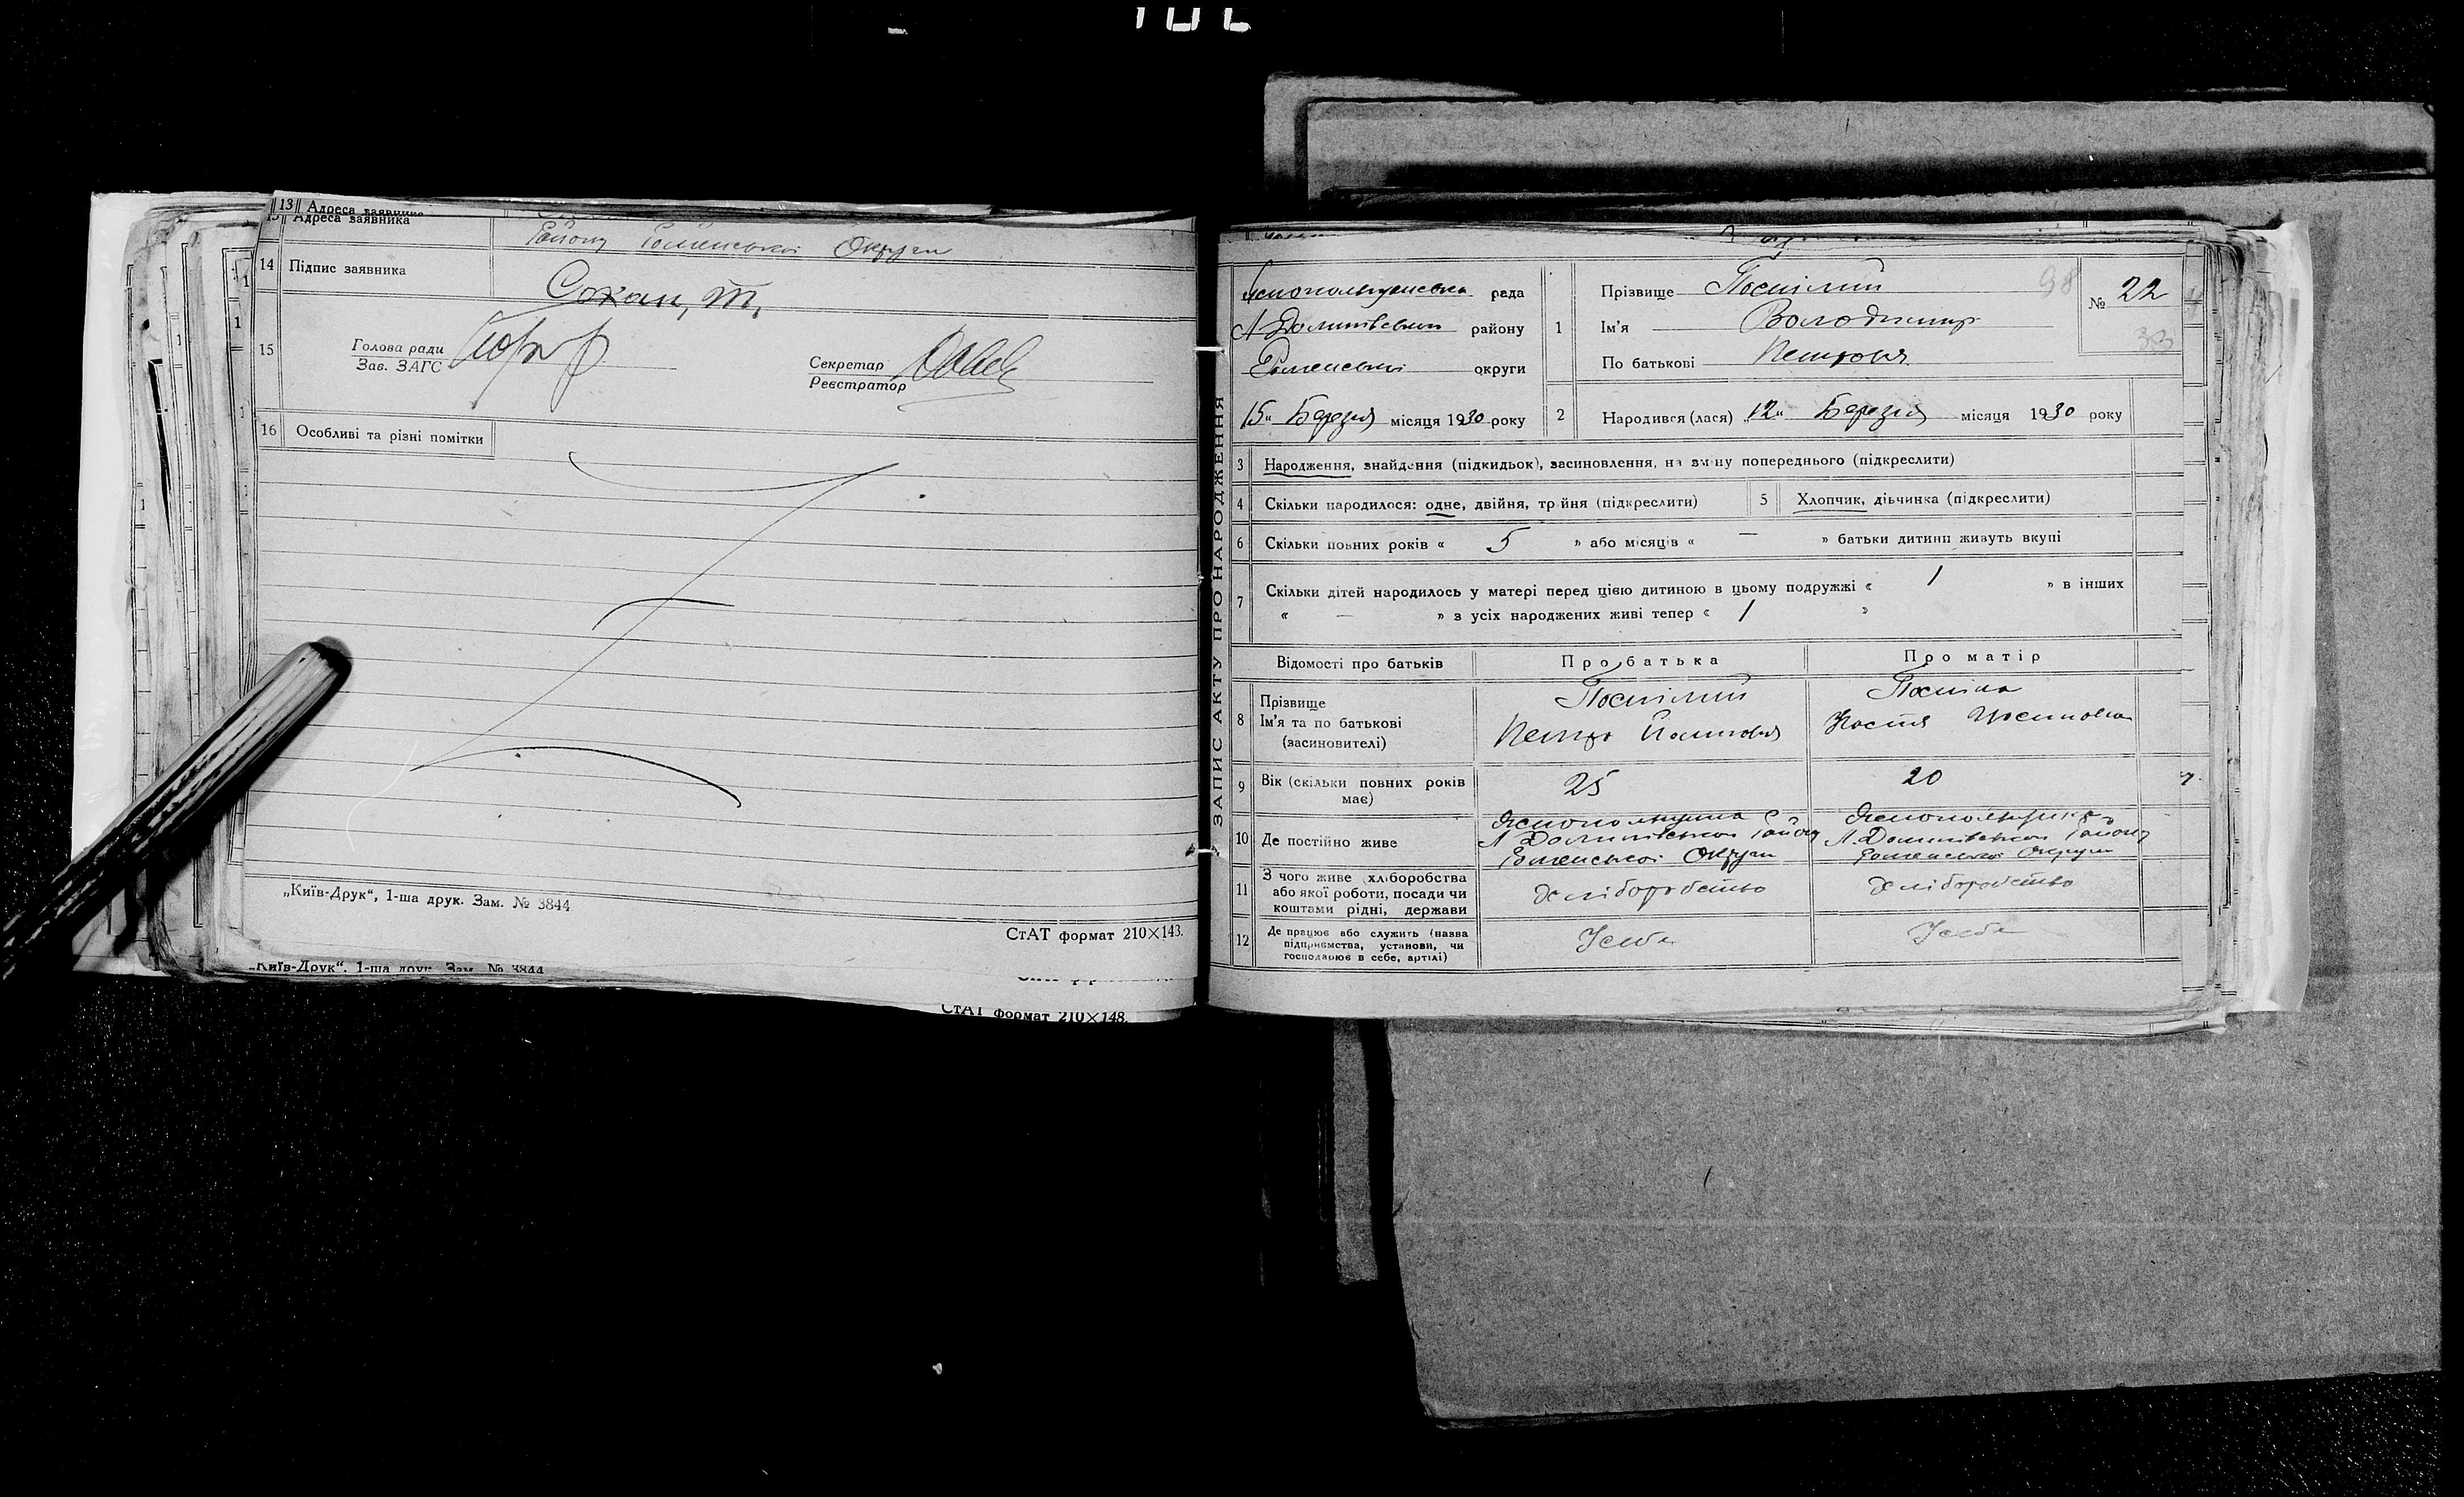 13 Адреса заявника
Адреса заявника
Району Роменської Округи
14 Підпис заявника
Сохан, т,
15 Голова ради
Зав. ЗАГС
Секретар
Реєстратор
16 Особливі та різні помітки
„Київ-Друк“, 1-ша друк. Зам. № 3844
СтАТ формат 210×143.
„Київ-Друк“, 1-ша друк. Зам. № 3844
СтАТ формат 210×148.
ЗАПИС АКТУ ПРО НАРОДЖЕННЯ
рада
району
Роменської округи
15 „ Березня місяця 1930 року
1 Прізвище Поспілий
Ім'я Володимир
По батькові Петрович
98
№ 22
33
2 Народився (лася) „12„ Березня місяця 1930 року
3 Народження, знайдення (підкидьок), засиновлення, на зміну попереднього (підкреслити)
4 Скільки народилося: одне, двійня, трійня (підкреслити) 5 Хлопчик, дівчинка (підкреслити)
6 Скільки повних років « 5 » або місяців « — » батьки дитини живуть вкупі
7 Скільки дітей народилось у матері перед цією дитиною в цьому подружжі « 1 » в інших
« — » з усіх народжених живі тепер « 1 »
Відомості про батьків Про батька Про матір
8 Прізвище Поспілий
Ім'я та по батькові Петро
(засиновителі)
9 Вік (скільки повних років 25 20
має)
10 Де постійно живе
Роменської Округи Роменської Округи
11 З чого живе (хліборобства
або якої роботи, посади чи хліборобство хліборобство
коштами рідні, держави
12 Де працює або служить (назва
підприємства, установи, чи Усебе Усебе
господарює в себе, артілі)